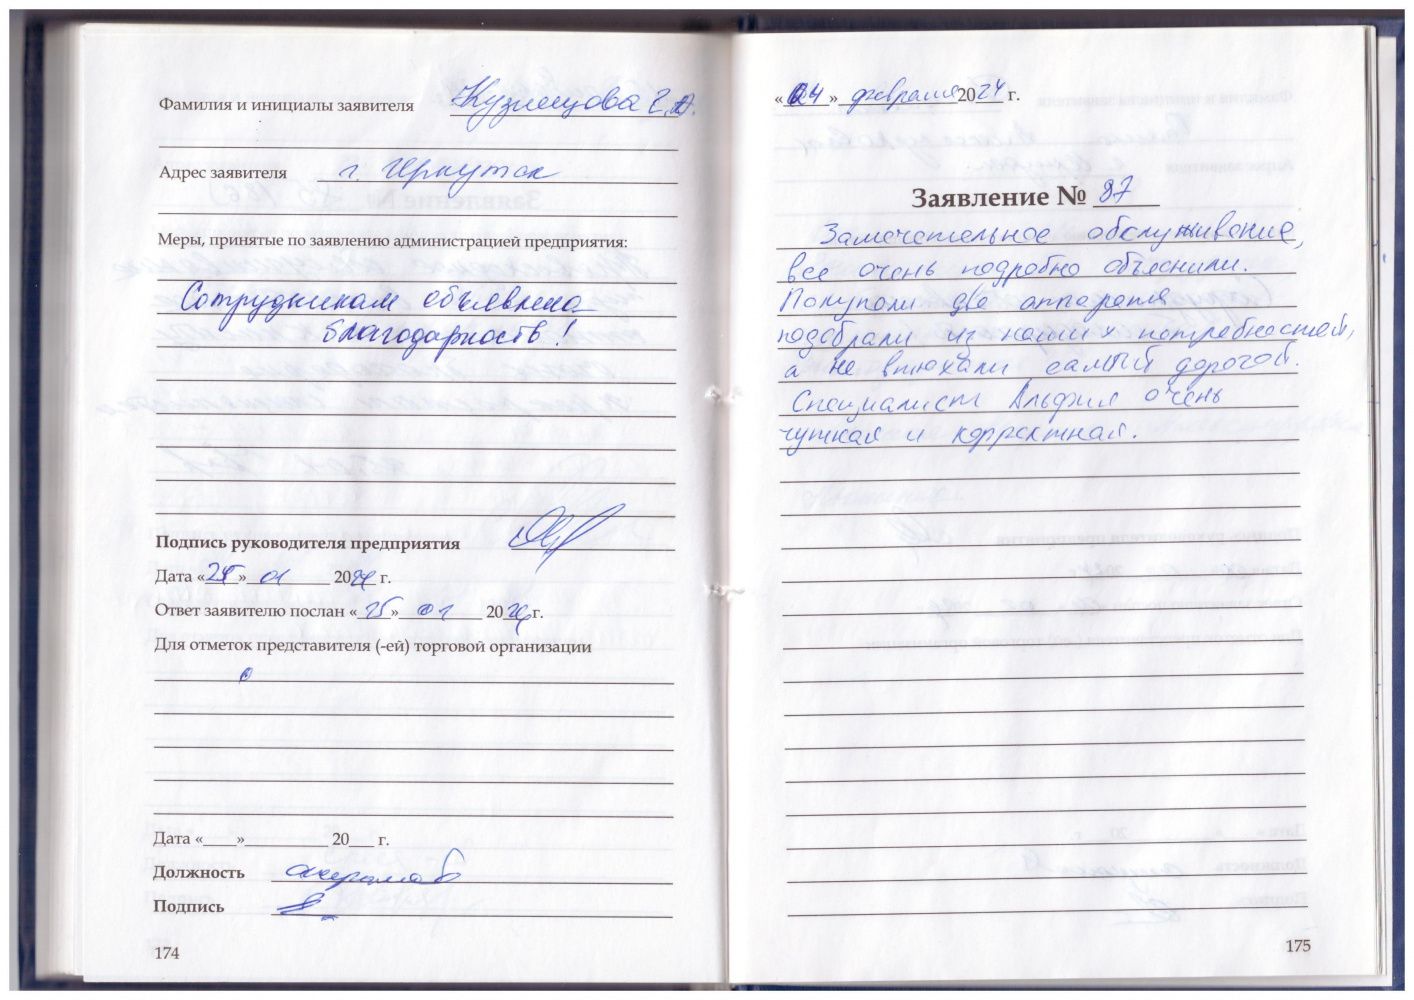 Фамилия и инициалы заявителя Кузнецова Е.А.
Адрес заявителя г. Иркутск
Меры, принятые по заявлению администрацией предприятия:
Сотрудникам объявлена
благодарность!
Подпись руководителя предприятия
Дата «25» 01 2024 г.
Ответ заявителю послан «25» 01 2024 г.
Для отметок представителя (-ей) торговой организации
Дата «___»__________ 20___ г.
Должность
Подпись
174
«04» февраля 2024 г.
Заявление № 87
Замечательное обслуживание,
все очень подробно объяснили.
Покупали два аппарата
подобрали из наших потребностей,
а не втюхали самый дорогой.
Специалист Альфия очень
чуткая и корректная.
175